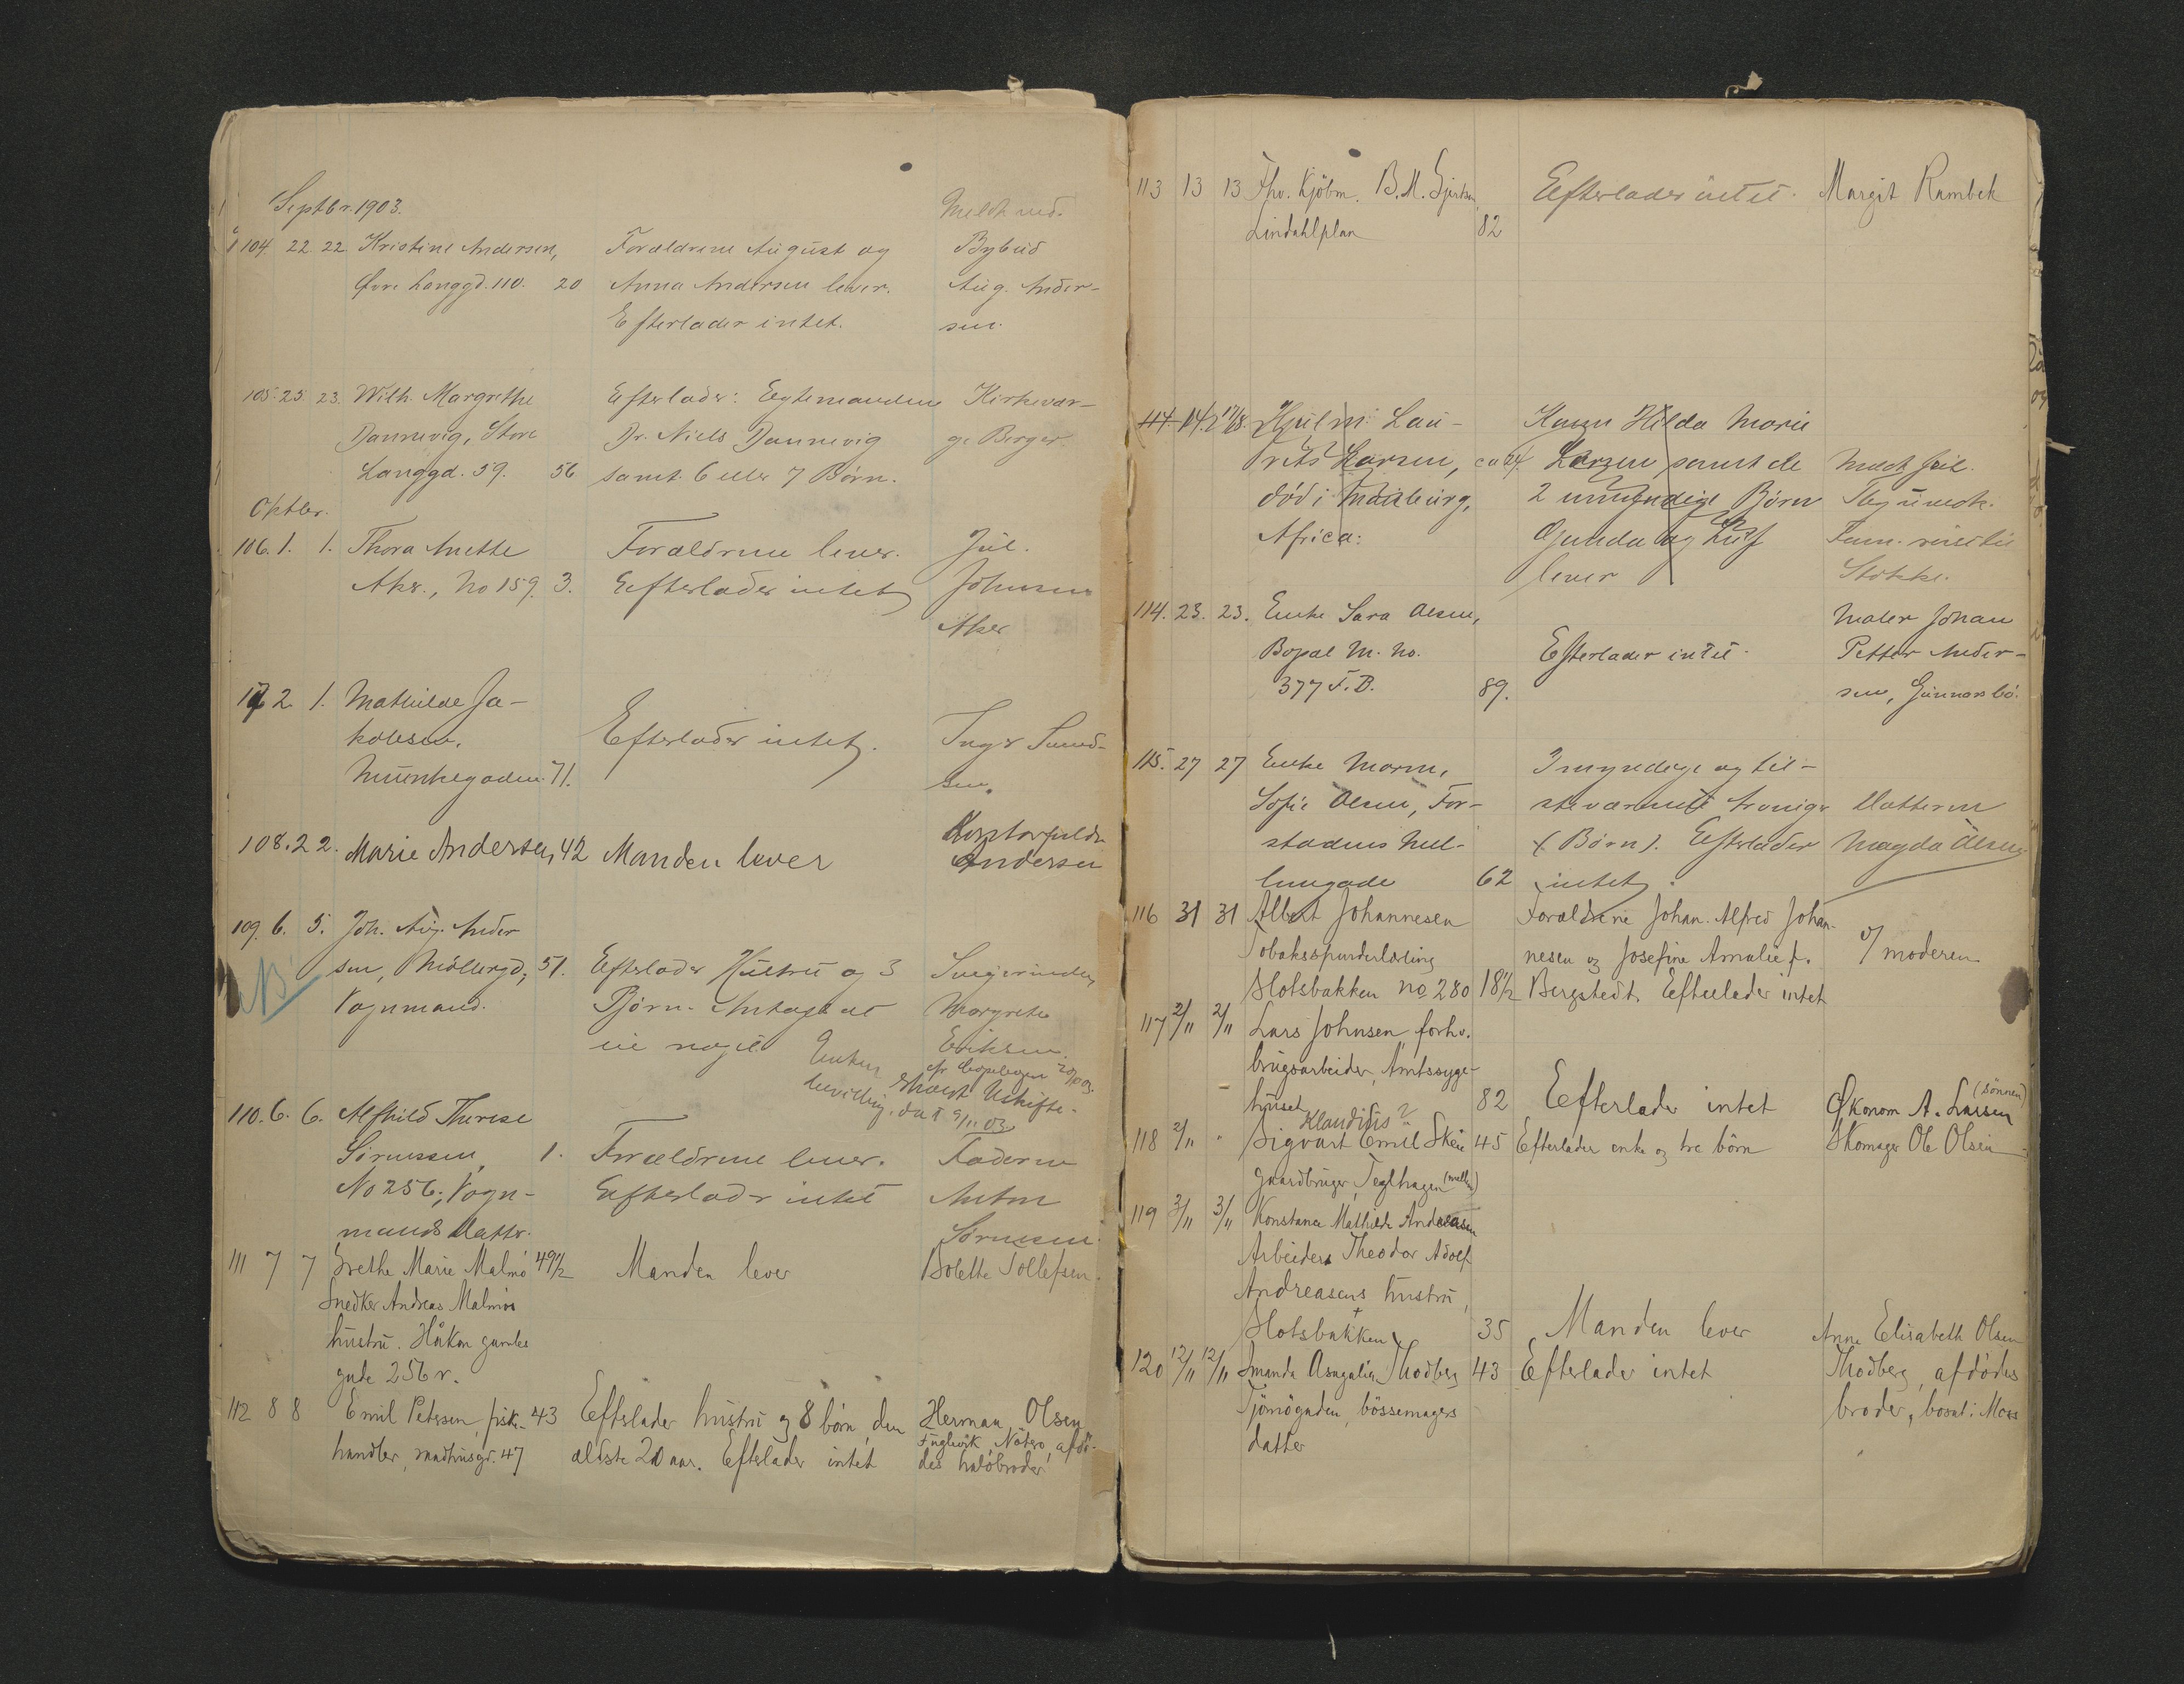 Septbr. 1903.
Meldt ved.
104. 22 22 Kristine Andersen, Forældrene August og Bybud
Øvre Langgd. 110. 20 Anna Andersen lever. Aug. Ander-
Efterlader intet. sen.
105. 25. 23. Wilh. Margrethe Efterlader: Egtemanden Kirkevær-
Dannevig, Store Dr. Niels Dannevig ge Berger.
Langgd. 59. 56 samt 6 eller 7 Børn.
Oktbr.
106. 1. 1. Thora Anette Forældrene lever. Jul.
Aker, No 159. 3. Efterlader intet Johnsen
Aker
107 2. 1. Mathilde Ja-
kobsen, Efterlader intet. Inger
Munkegaden. 71. sen.
108. 2 2. Marie Andersen, 42 Manden lever
Andersen
109. 6. 5. Joh. Aug. Ander
sen, Møllergd, 51. Efterlader Hustru og 3
Vognmand. Børn. Antagelse Margrethe
NB
Eriksen.
Enken
bevilling. dat 9/11 03
110. 6. 6. Alfhild Therese
Sørensen, 1. Forældrene lever. Faderen
No 256, Vogn- Efterlader intet Anton
mands Datter. Sørensen.
111 7 7 Grethe Marie Malmö 49 1/2 Manden lever Bolette Tollefsen.
Snedker Andreas Malmös
hustru. Håkon gamles
gade 256 r.
112 8 8 Emil Petersen, fiske- 43 Efterlader hustru og 8 börn, den Herman Olsen
handler, raadhusgd. 47 ældste 20 aar. Efterlader intet
Fuglevik, Nøterø, afdö-
des halvbroder
113 13 13 Fhv. Kjöbm. B. M. Efterlader intet. Margit Rambek
Lindahlplan 82
114 14/2 Lau- Karen Hilda Marie
rits Larsen, ca 24 Larsen, samt de
død i 2 umyndige Børn
Africa: Gunda og
lever Stokke.
114. 23. 23. Enke Sara Olsen, Maler Johan
Bopæl M. No. Efterlader intet. Petter Ander-
377 F. B. 89. sen, Gunnarsbö.
115. 27 27 Enke Maren, 3 myndige og til-
Sofie Olsen, For- stedeværende Arvinger Datteren
stadens Mel- (Børn). Efterlader Magda Olsen
lemgade 62 intet.
116 31 31 Albert Johannesen Forældrene Johan Alfred Johan-
Tobaksspinderlærling nesen og Josefine Amalie f. v/ moderen
Slotsbakken no 280 18 1/2 Bergstedt. Efterlader intet
117 2/11 2/11 Lars Johnsen, forhv.
brugsarbeider, Amtssyge-
huset 82 Efterlader intet Økonom A. Larsen (sønnen)
Klaudius?
118 2/11 " Sigvart Emil Skeie 45 Efterlader enke og tre børn Skomager Ole Olsen
gaardbruger, Teglhagen (mellem)
119 3/11 3/11 Konstance Mathilde Andreasen
Arbeider Theodor Adolf
Andreasens hustru,
Slotsbakken 35 Manden lever Anne Elisabeth Olsen
120 12/11 12/11 Amanda Thodberg 43 Efterlader intet Thodberg, afdödes
Tjömögaden, bössemagers broder, bosat i Moss
datter